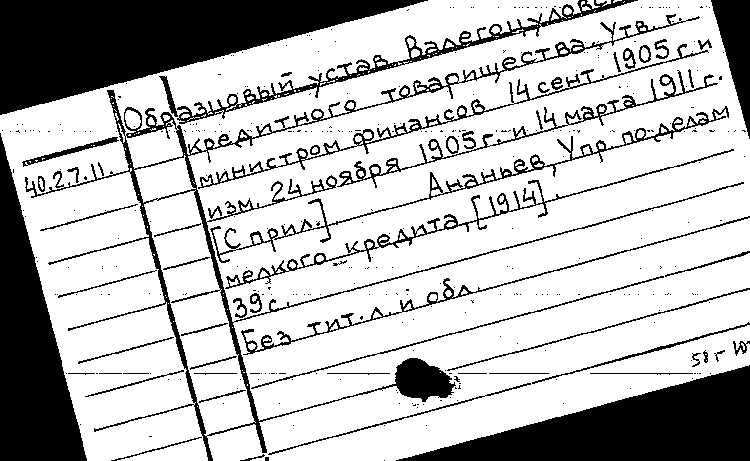 Образцовый устав Валегоцулов
кредитного товарищества. Утв. г.
министром финансов 14 сент. 1905 г. и
40.2.7.11.
изм. 24 ноября 1905 г. и 14 марта 1911 г.
[С прил.]. Ананьев, Упр. по делам
мелкого кредита, [1914].
39 с.
Без тит. л. и обл.